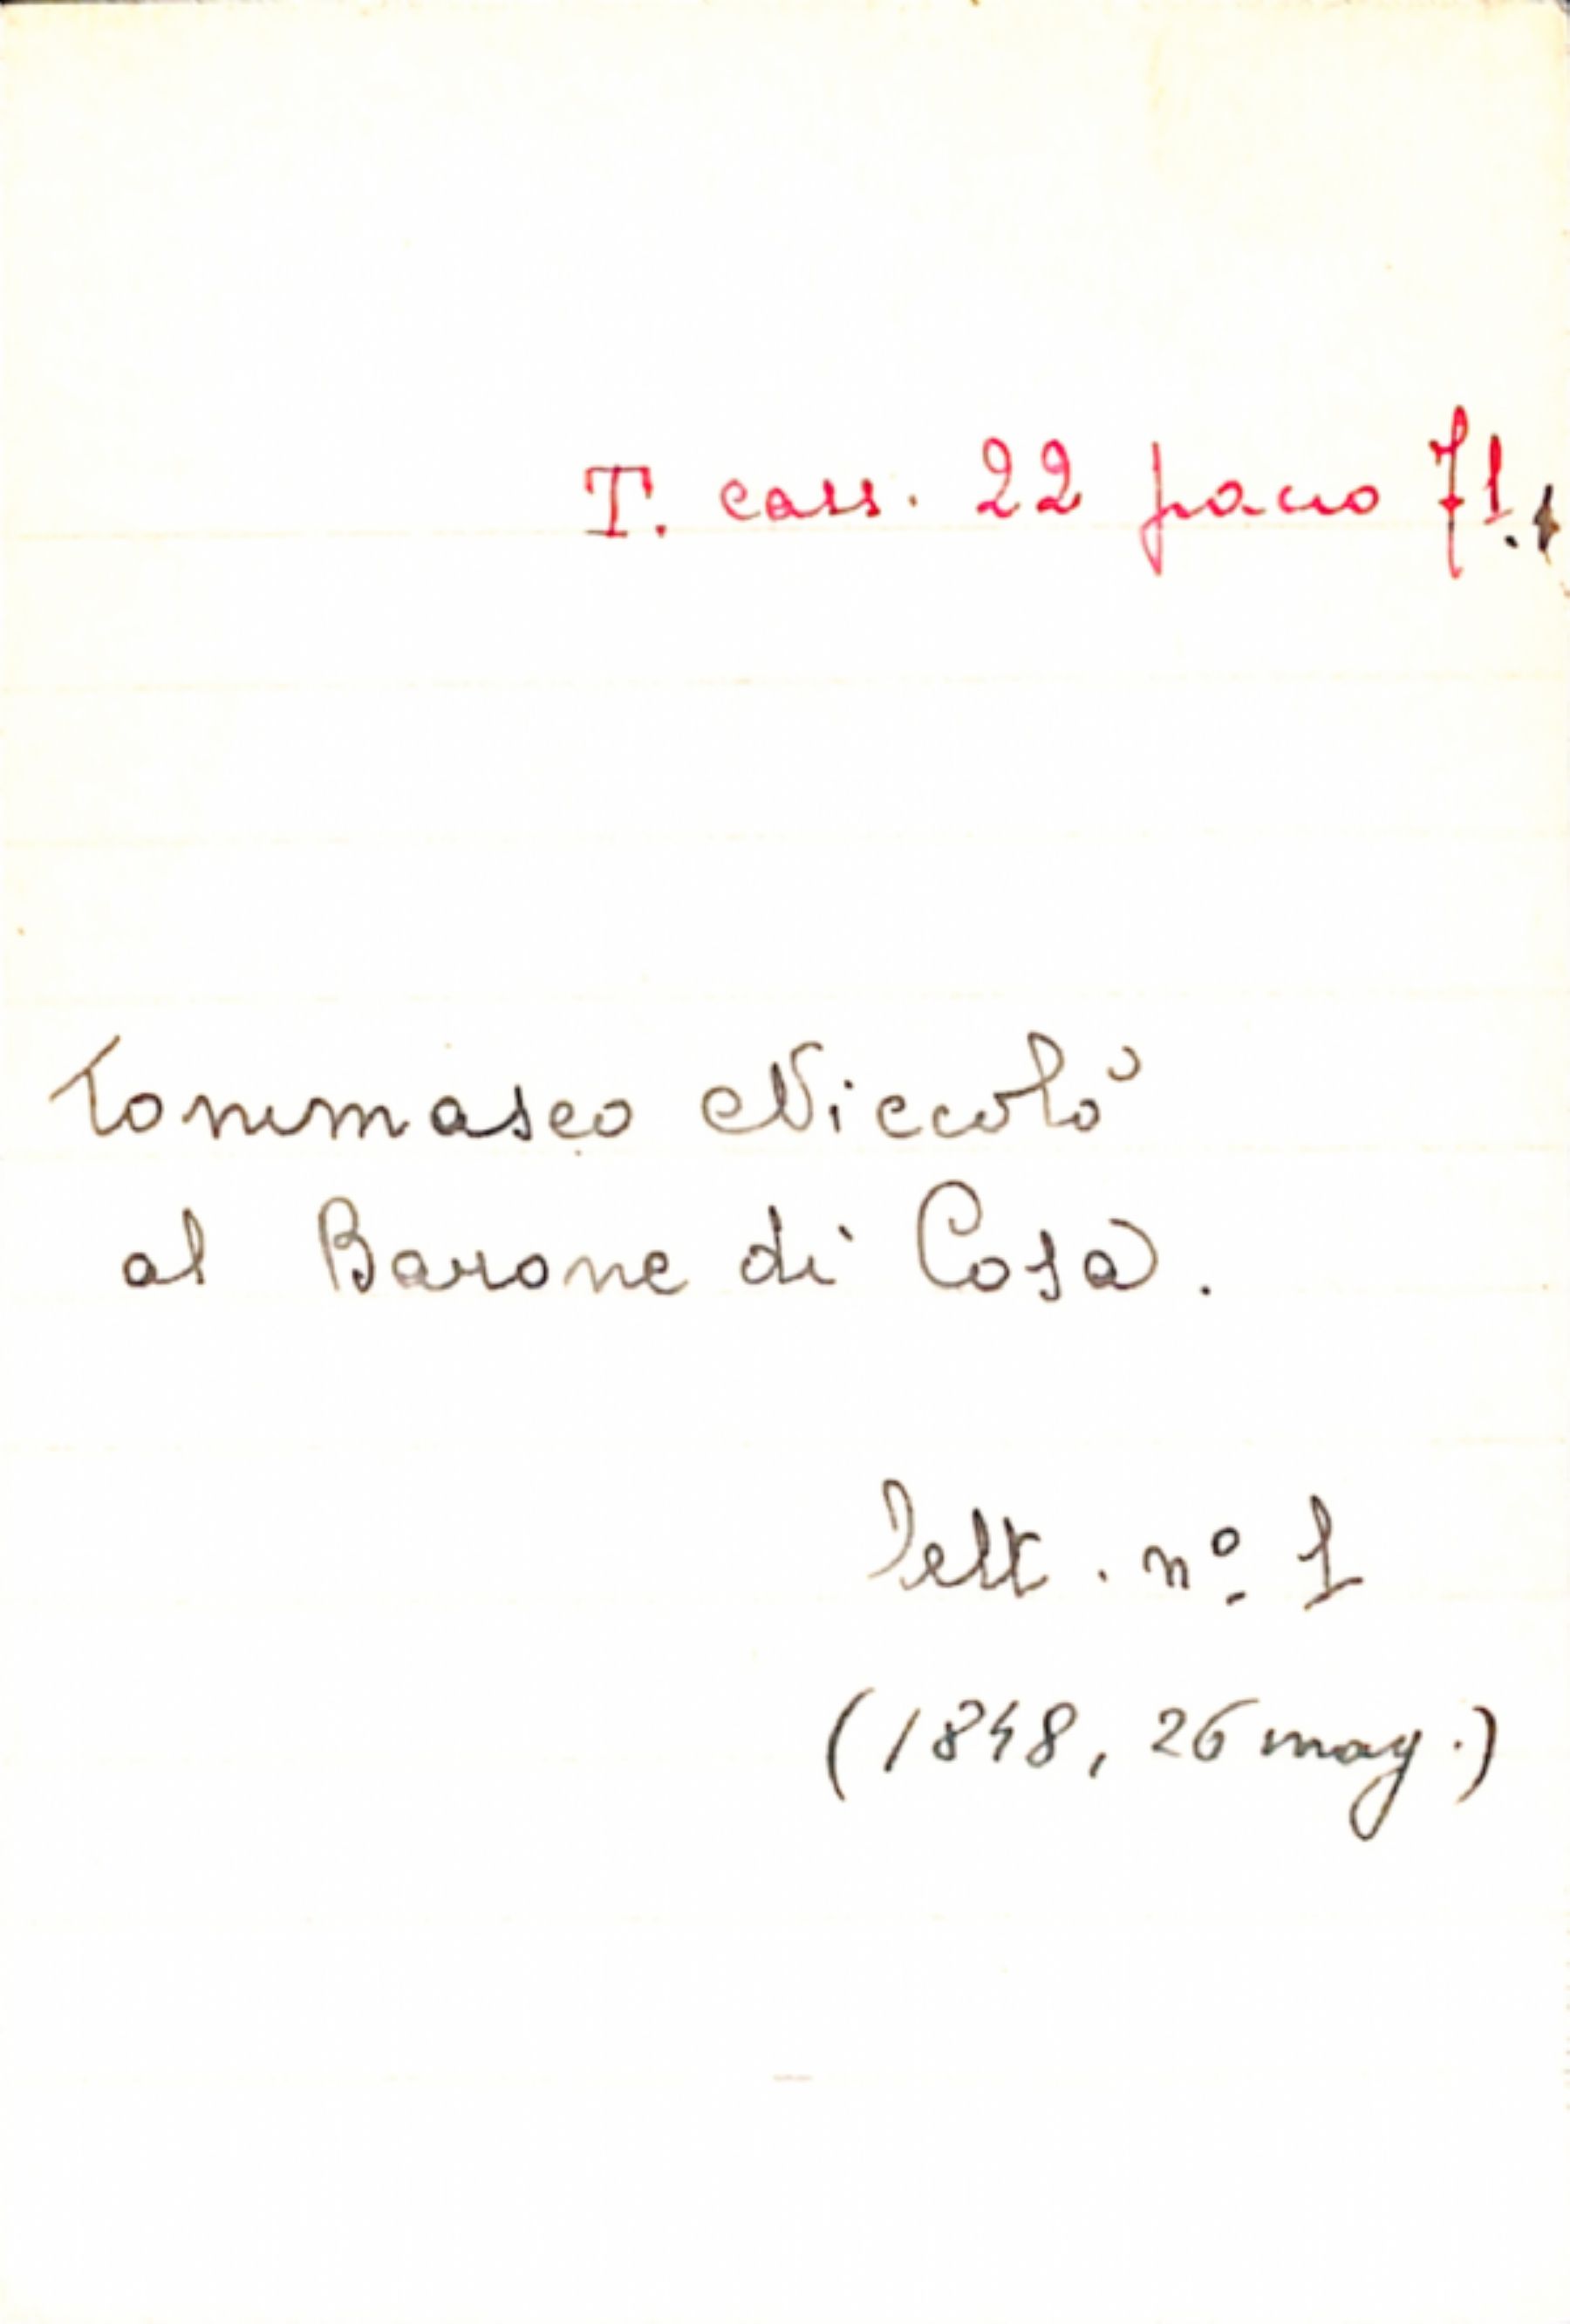 T. cass. 22 pacco 71.1
Tommaseo Niccolò
al Barone di Cosa.
Lett. nº 1
(1848, 26 mag.)